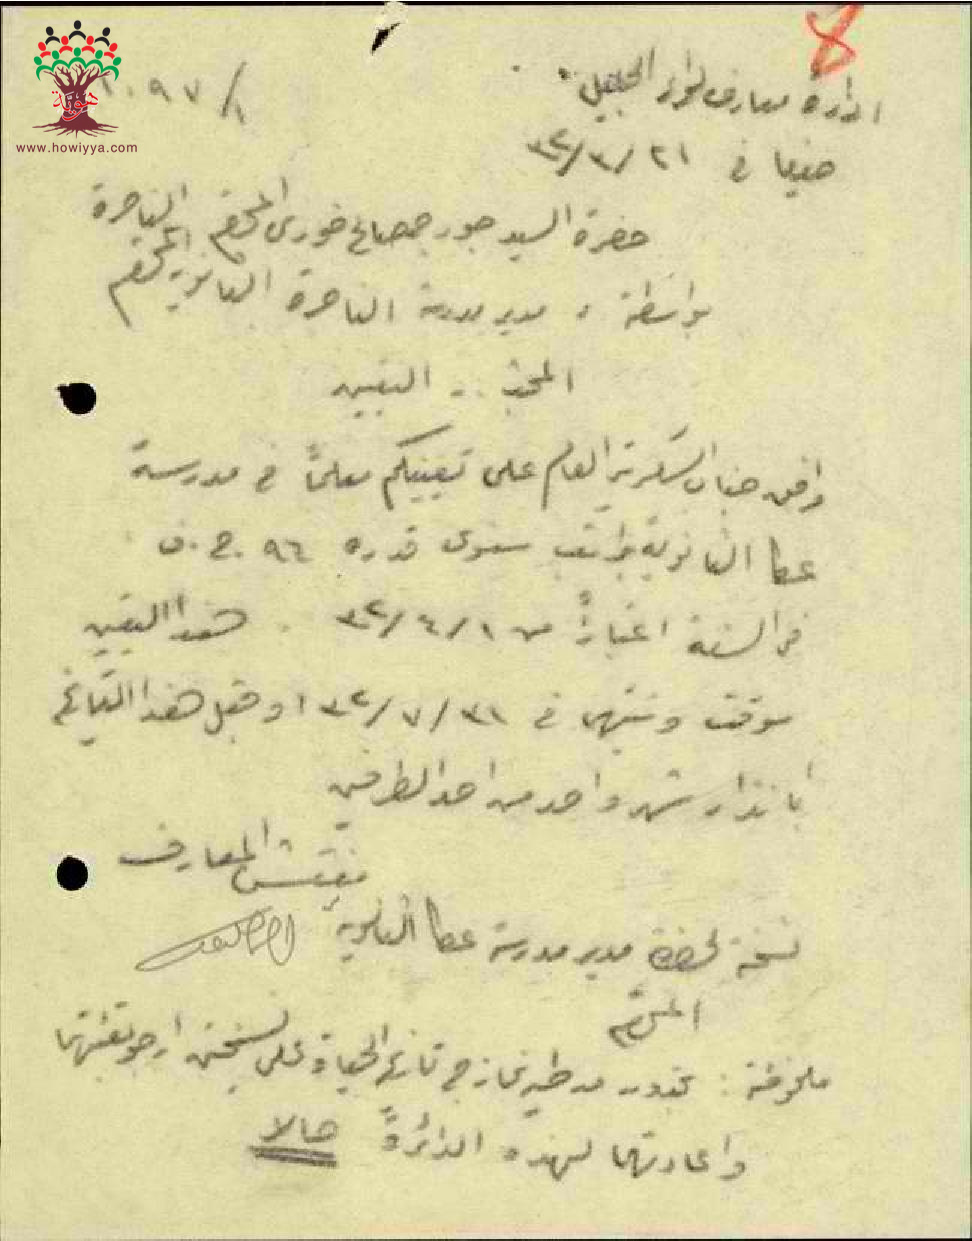 8
هوية
www.howiyya.com
١٠٩٧/١
ادارة معارف لواء الجليل
حيفا في ٢١/٣/٣٢
حضرة السيد جورج صالح خوري المحترم الناصرة
بواسطة مدير مدرسة الناصرة الثانوية المحترم
التعيين
وافق جناب السكرتير العام على تعيينكم معلماً في مدرسة
عكا الثانوية براتب سنوي قدره ٩٦ ج.ف
في السنة اعتباراً من ١/٤/٣٢ . هذا التعيين
موقت وينتهي في ٣١/٧/٣٢ او قبل هذا التاريخ
بانذار شهر واحد من احد الطرفين
مفتش المعارف
نسخة لحضرة مدير مدرسة عكا الثانوية
المحترم
ملحوظة : تجدون نماذج تاريخ الحياة على نسختين ارجو تعبئتها
واعادتها لهذه الدائرة حالا